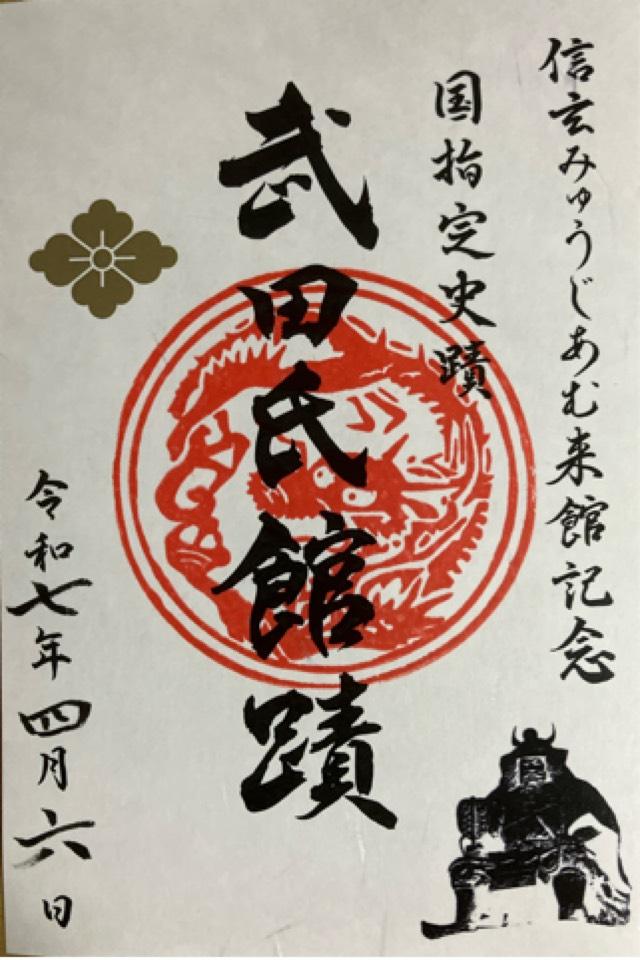 信玄みゅうじあむ来館記念
国指定史蹟
武田氏館蹟
令和七年四月六日